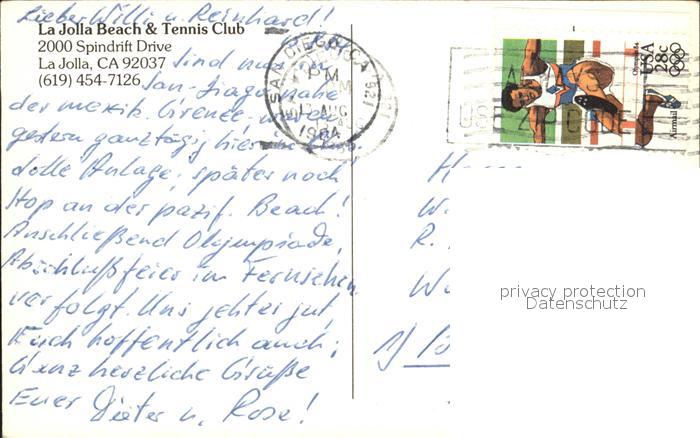 Lieber Willi u. Reinhard!
La Jolla Beach & Tennis Club
2000 Spindrift Drive
La Jolla, CA 92037
(619) 454-7126
Sind nun in
San Diego nahe
der mexik. Grenze. waren
gestern ganztägig hier im Club.
dolle Anlage, später noch
Stop an der pazif. Beach!
Anschließend Olympiade,
Abschlußfeier im Fernsehen
verfolgt. Uns geht es gut,
Euch hoffentlich auch;
Ganz herzliche Grüße
Euer Dieter u. Rosa!
SAN DIEGO, CA 921
PM
AUG
1984
USA 28c
Olympics 84
Airmail
USE ZIP CODE
H
W
R.
W
privacy protection
Datenschutz